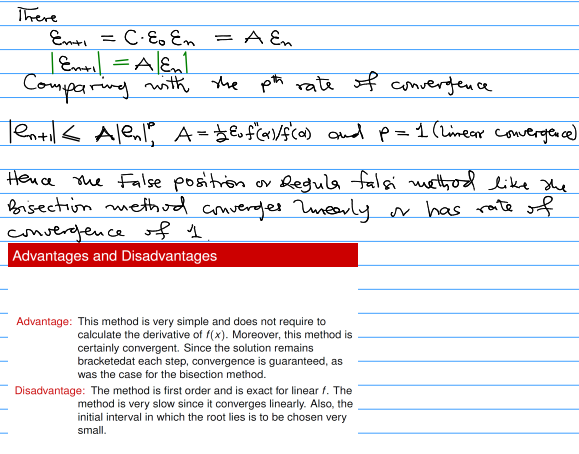 There
εn+1 = C·ε0 εn = A εn
|εn+1| = A|εn|
Comparing with the pth rate of convergence
|en+1| ≤ A|en|^p, A = ½ε0 f''(α)/f'(α) and p = 1 (linear convergence)
Hence the False position or Regula falsi method like the
Bisection method converges linearly or has rate of
convergence of 1.
Advantages and Disadvantages
Advantage: This method is very simple and does not require to
calculate the derivative of f(x). Moreover, this method is
certainly convergent. Since the solution remains
bracketedat each step, convergence is guaranteed, as
was the case for the bisection method.
Disadvantage: The method is first order and is exact for linear f. The
method is very slow since it converges linearly. Also, the
initial interval in which the root lies is to be chosen very
small.